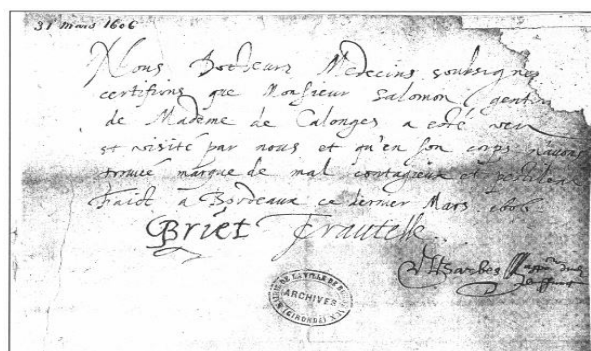 31 mars 1606
Nous Docteurs Medecins soubsignez
certifions que Monsieur Salomon gent
de Madame de Calonges a esté veu
et visité par nous et qu'en son corps n'avons
trouvé marque de mal contagieux et pestilent
Faict a Bordeaux ce dernier Mars 1606
Briet Trautelle
ARCHIVES
(GIRONDE)